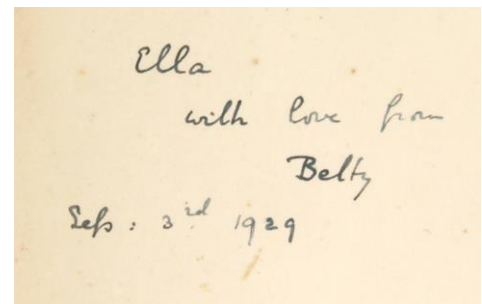 Ella
with love from
Betty
Sep: 3rd 1929